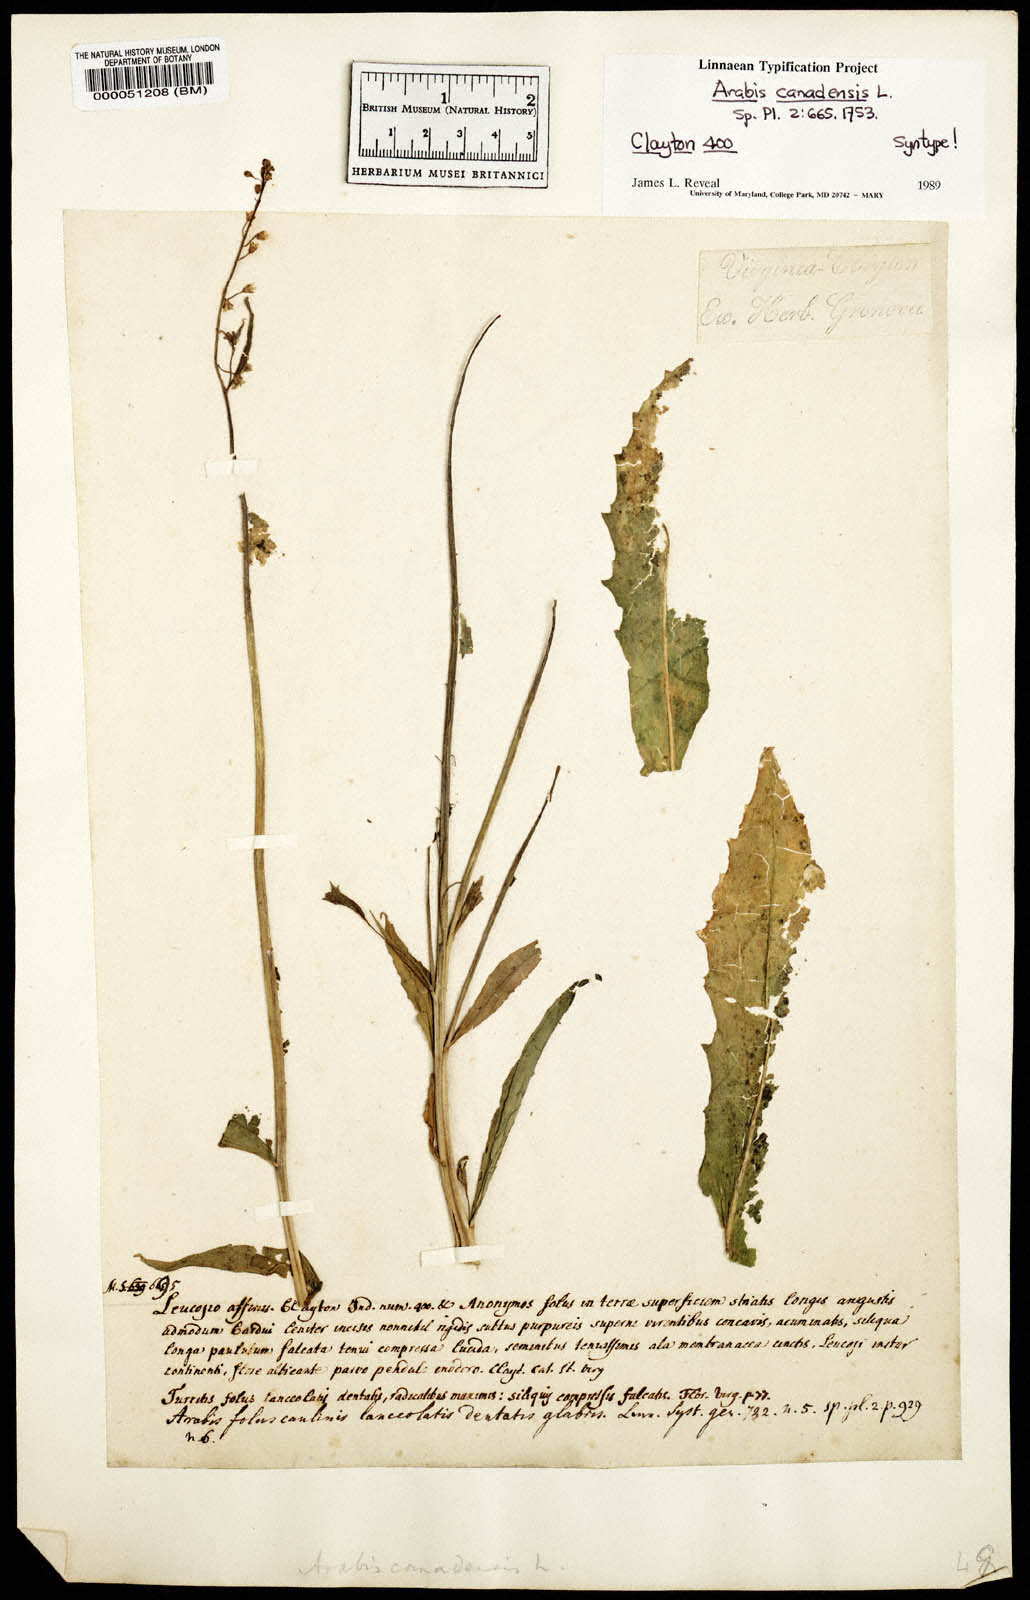 THE NATURAL HISTORY MUSEUM, LONDON
DEPARTMENT OF BOTANY
000051208 (BM)
1 2
BRITISH MUSEUM (NATURAL HISTORY)
1 2 3 4 5
HERBARIUM MUSEI BRITANNICI
Linnaean Typification Project
Arabis canadensis L.
Sp. Pl. 2:665. 1753.
Clayton 400 Syntype!
James L. Reveal 1989
University of Maryland, College Park, MD 20742 – MARY
Virginea Clayton
Herb. Gronovii
Leucojo affinis. Clayton Ind. num. 400. & Anonymos foliis in terræ superficiem striatis longis angustis
admodum Cardui leniter incisis nonnihil rigidis subtus purpureis superne virentibus concavis, acuminatis, siliqua
longa paululum falcata tenui compressa lucida, seminibus tenuissimis ala membranacea cinctis, Leucoji instar
continenti, flore albicante parvo pendulo Clayt. Cat. St. Virg
Turritis foliis lanceolatis dentatis, radicalibus maximis: siliquis compressis falcatis. Flor. Virg. p. 77.
Arabis foliis caulinis lanceolatis dentatis glabris. Linn. Syst. gen. 732. n. 5. sp. pl. 2 p. 929
n. 6.
Arabis canadensis L.